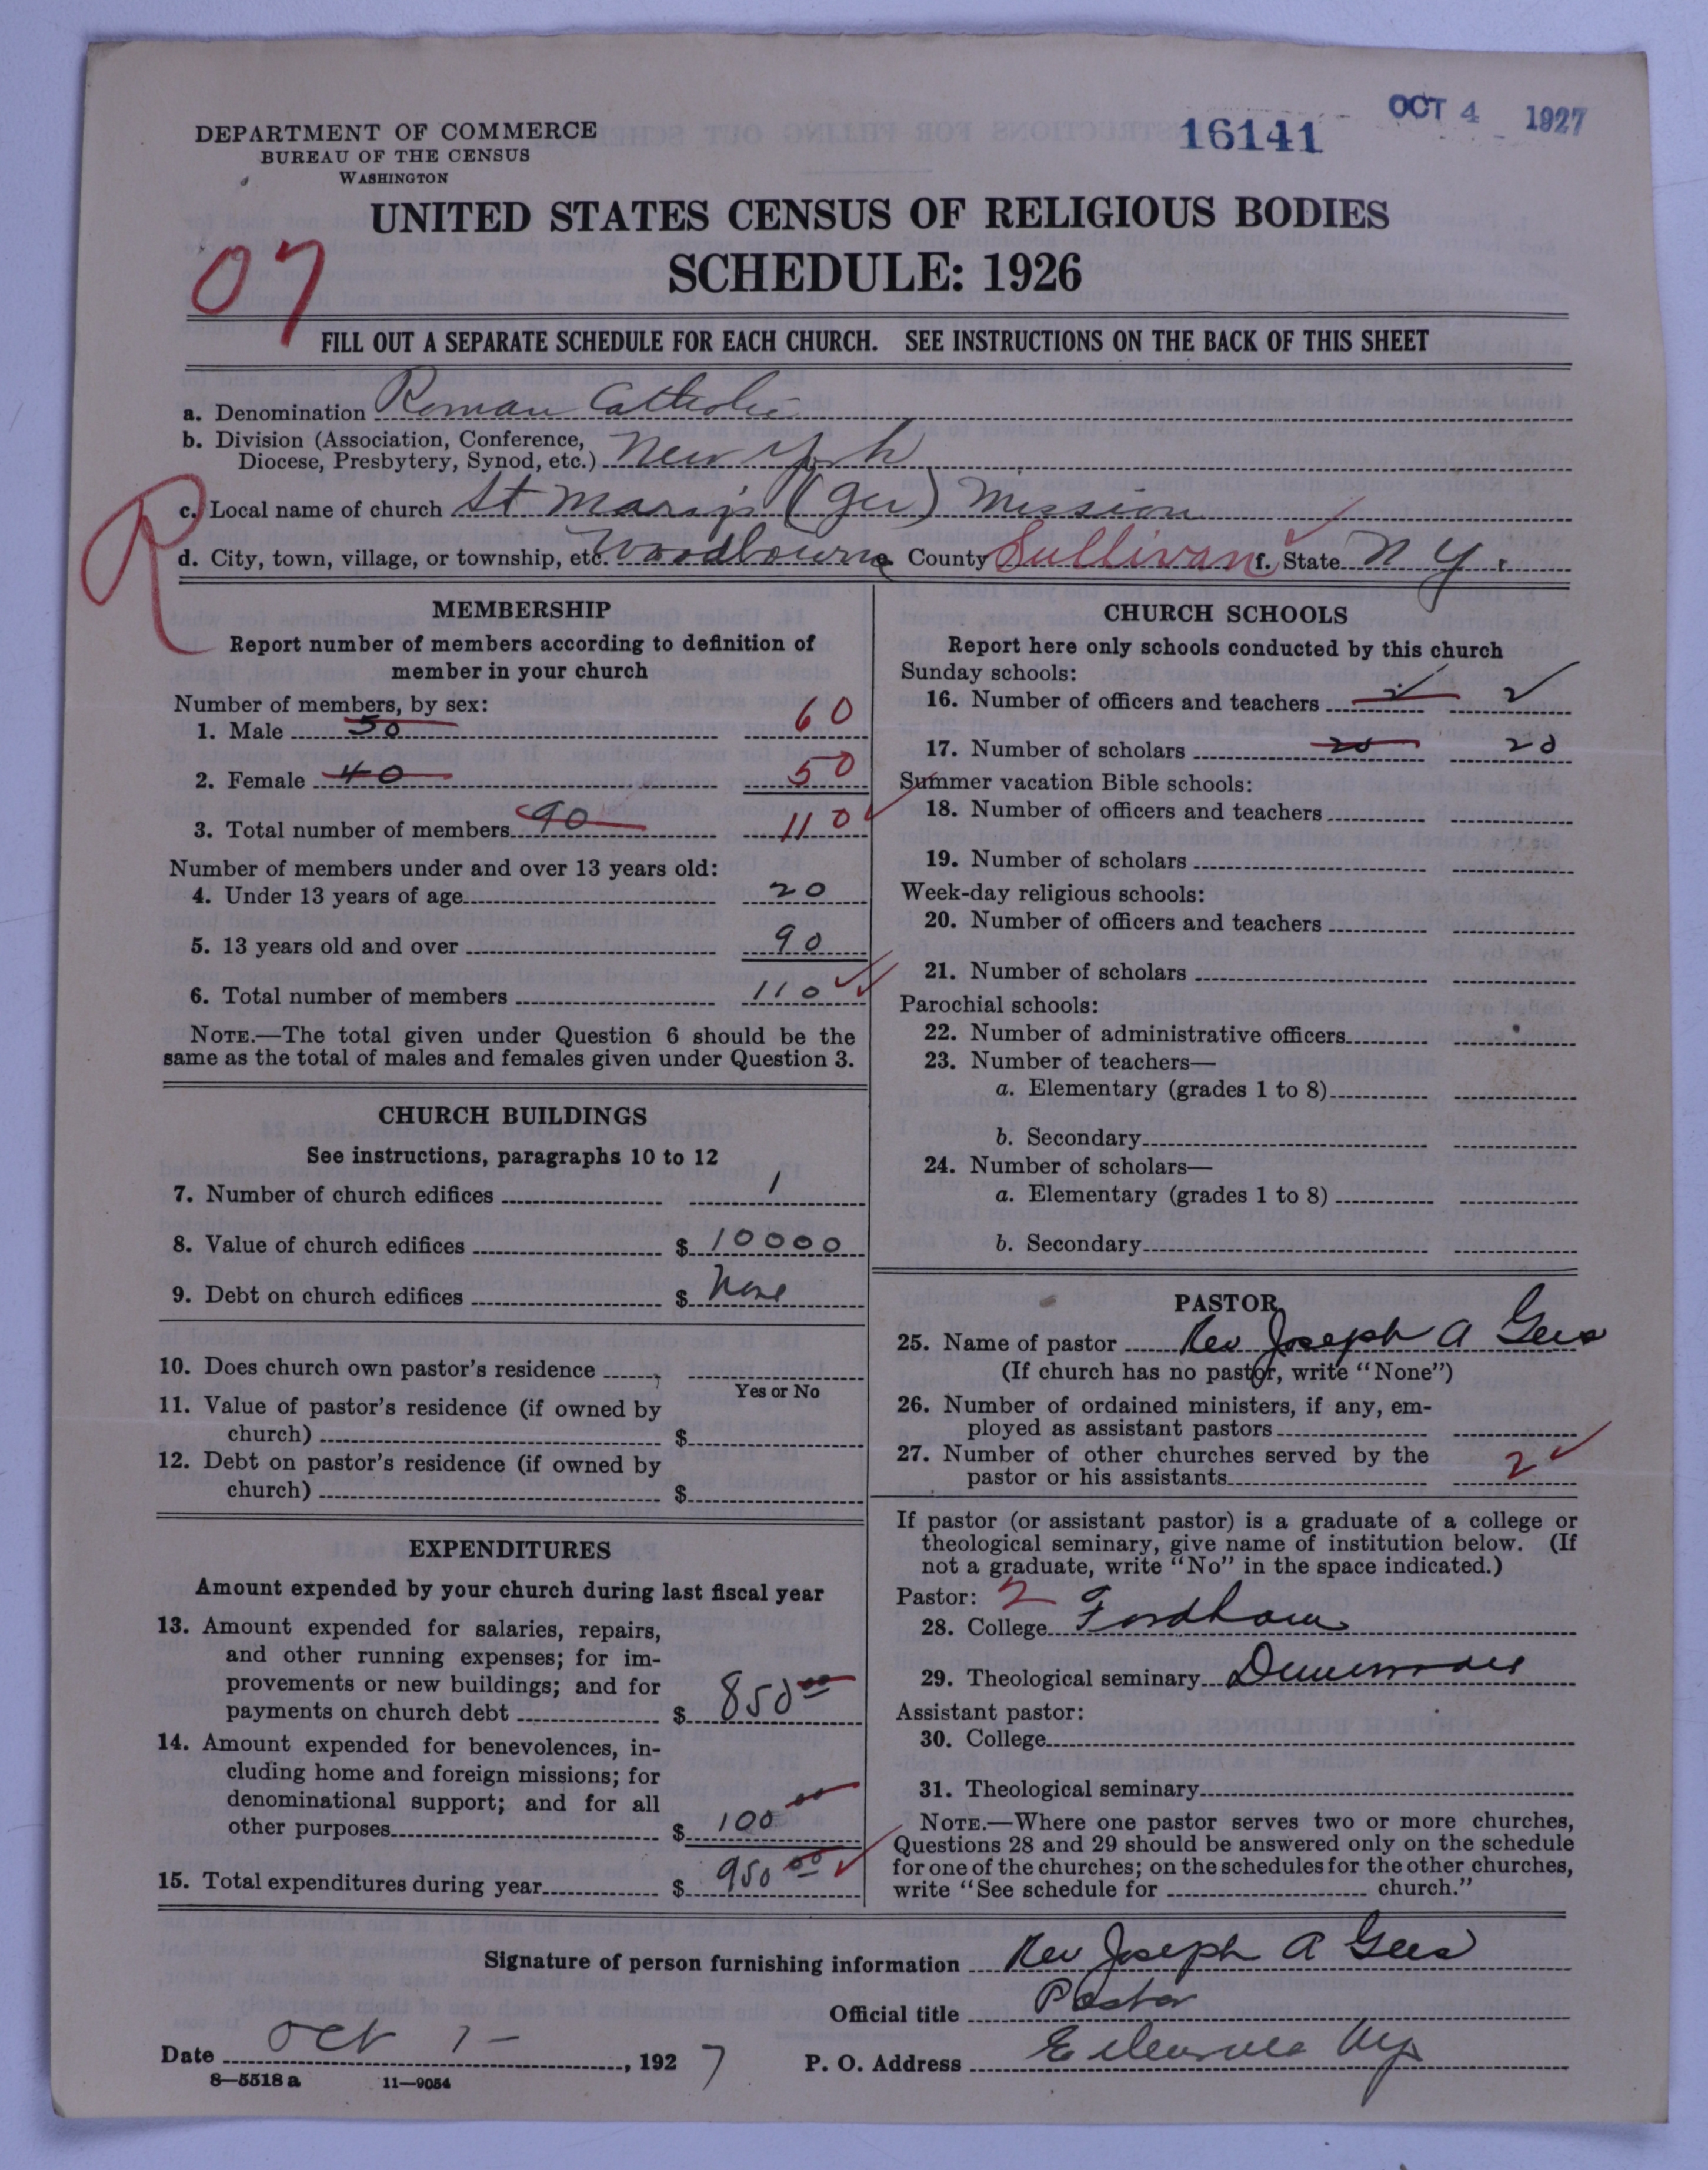 DEPARTMENT OF COMMERCE
BUREAU OF THE CENSUS
WASHINGTON
16141
OCT 4 1927
UNITED STATES CENSUS OF RELIGIOUS BODIES
SCHEDULE: 1926
07
FILL OUT A SEPARATE SCHEDULE FOR EACH CHURCH. SEE INSTRUCTIONS ON THE BACK OF THIS SHEET
a. Denomination Roman Catholic
b. Division (Association, Conference,
Diocese, Presbytery, Synod, etc.) New York
R
c. Local name of church St Mary's (Ger) Mission
d. City, town, village, or township, etc. Woodbourne County Sullivan f. State N Y.
MEMBERSHIP
Report number of members according to definition of
member in your church
Number of members, by sex:
1. Male 50 60
2. Female 40 50
3. Total number of members 90 110
Number of members under and over 13 years old:
4. Under 13 years of age 20
5. 13 years old and over 90
6. Total number of members 110
NOTE.—The total given under Question 6 should be the
same as the total of males and females given under Question 3.
CHURCH BUILDINGS
See instructions, paragraphs 10 to 12
7. Number of church edifices 1
8. Value of church edifices $ 10000
9. Debt on church edifices $ None
10. Does church own pastor's residence
Yes or No
11. Value of pastor's residence (if owned by
church) $
12. Debt on pastor's residence (if owned by
church) $
EXPENDITURES
Amount expended by your church during last fiscal year
13. Amount expended for salaries, repairs,
and other running expenses; for im-
provements or new buildings; and for
payments on church debt $ 850 00
14. Amount expended for benevolences, in-
cluding home and foreign missions; for
denominational support; and for all
other purposes $ 100 00
15. Total expenditures during year $ 950 00
CHURCH SCHOOLS
Report here only schools conducted by this church
Sunday schools:
16. Number of officers and teachers 2 2
17. Number of scholars 20 20
Summer vacation Bible schools:
18. Number of officers and teachers
19. Number of scholars
Week-day religious schools:
20. Number of officers and teachers
21. Number of scholars
Parochial schools:
22. Number of administrative officers
23. Number of teachers—
a. Elementary (grades 1 to 8)
b. Secondary
24. Number of scholars—
a. Elementary (grades 1 to 8)
b. Secondary
PASTOR
25. Name of pastor Rev Joseph A Geis
(If church has no pastor, write "None")
26. Number of ordained ministers, if any, em-
ployed as assistant pastors
27. Number of other churches served by the
pastor or his assistants 2
If pastor (or assistant pastor) is a graduate of a college or
theological seminary, give name of institution below. (If
not a graduate, write "No" in the space indicated.)
Pastor: 2
28. College Fordham
29. Theological seminary Dunwoodie
Assistant pastor:
30. College
31. Theological seminary
NOTE.—Where one pastor serves two or more churches,
Questions 28 and 29 should be answered only on the schedule
for one of the churches; on the schedules for the other churches,
write "See schedule for church."
Signature of person furnishing information Rev Joseph A Geis
Official title Pastor
Date Oct 1- , 1927
P. O. Address Ellenville Ny
8—5518 a 11—9054